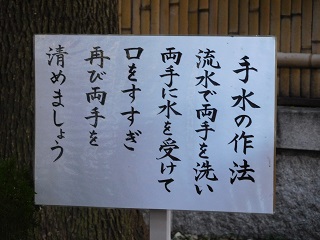 手水の作法
流水で両手を洗い
両手に水を受けて
口をすすぎ
再び両手を
清めましょう